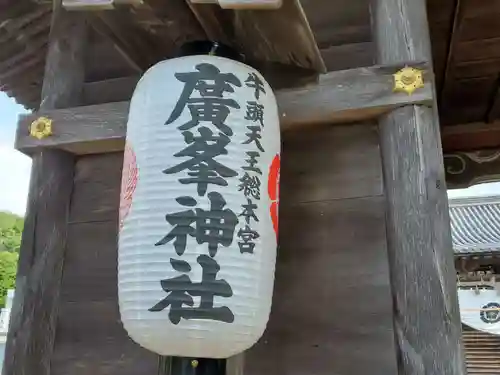 牛頭天王総本宮
廣峯神社